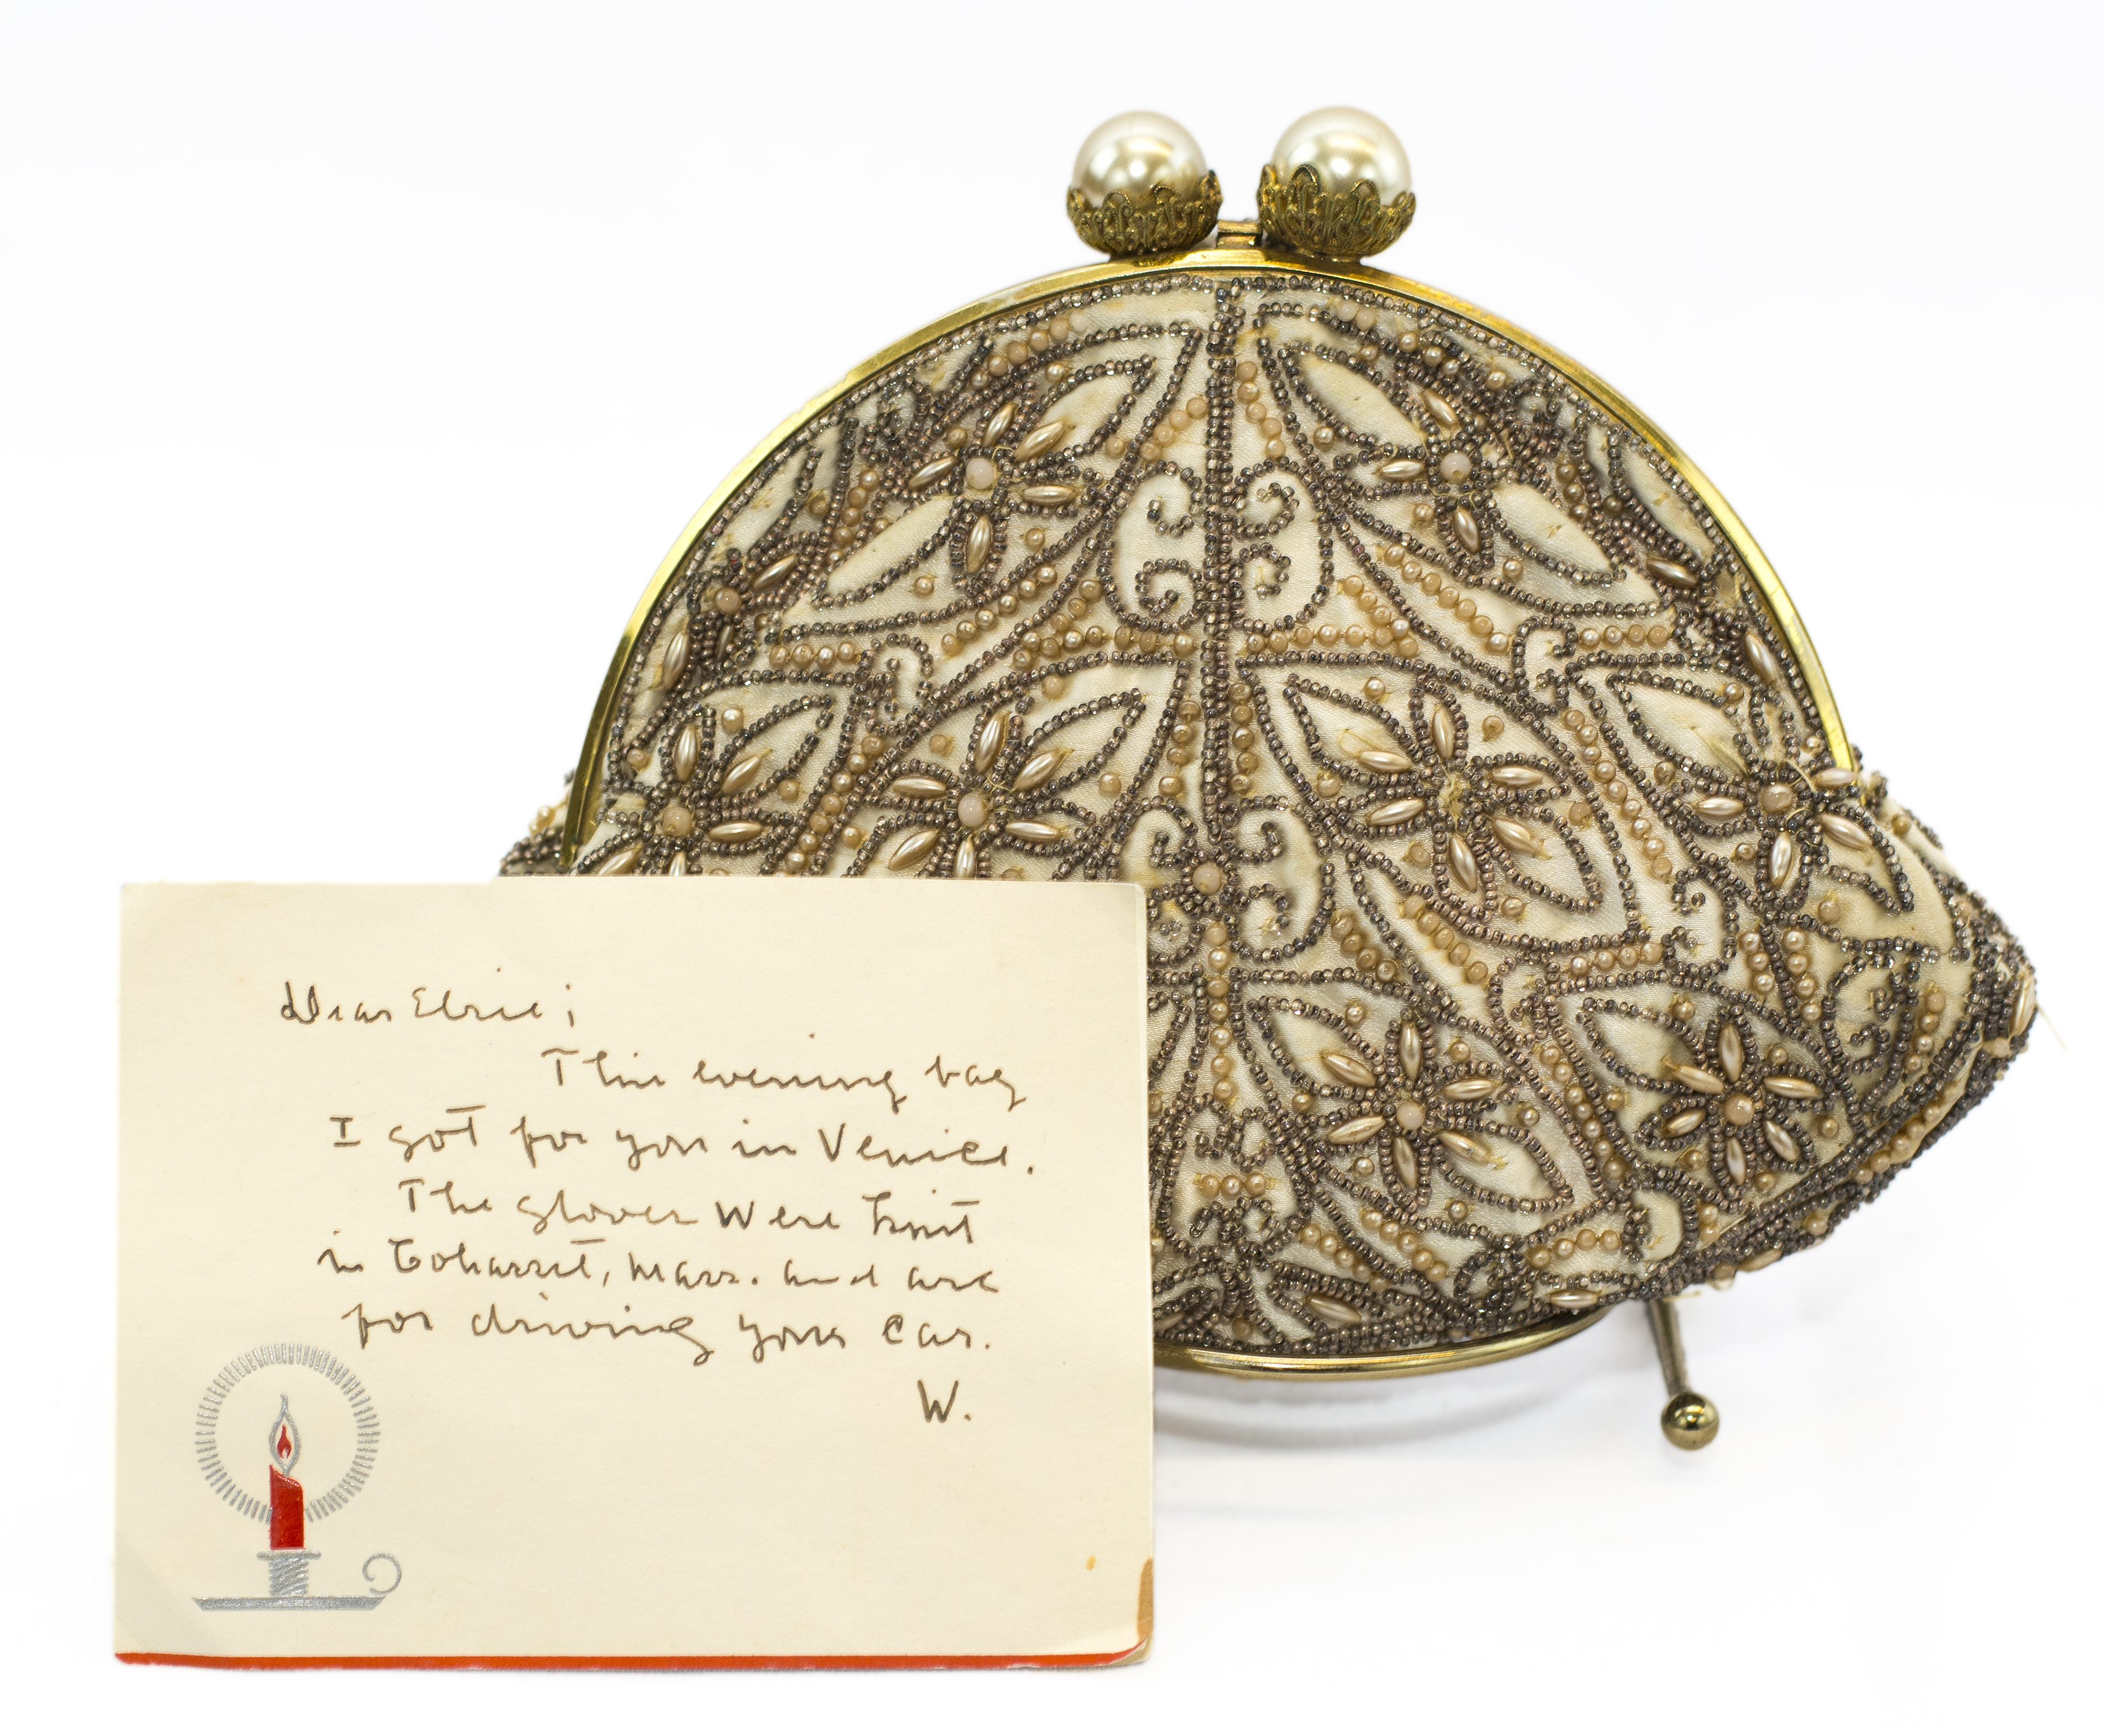 Dear Elsie;
This evening bag
I got for you in Venice.
The gloves were knit
in Cohasset, Mass. and are
for driving your car.
W.